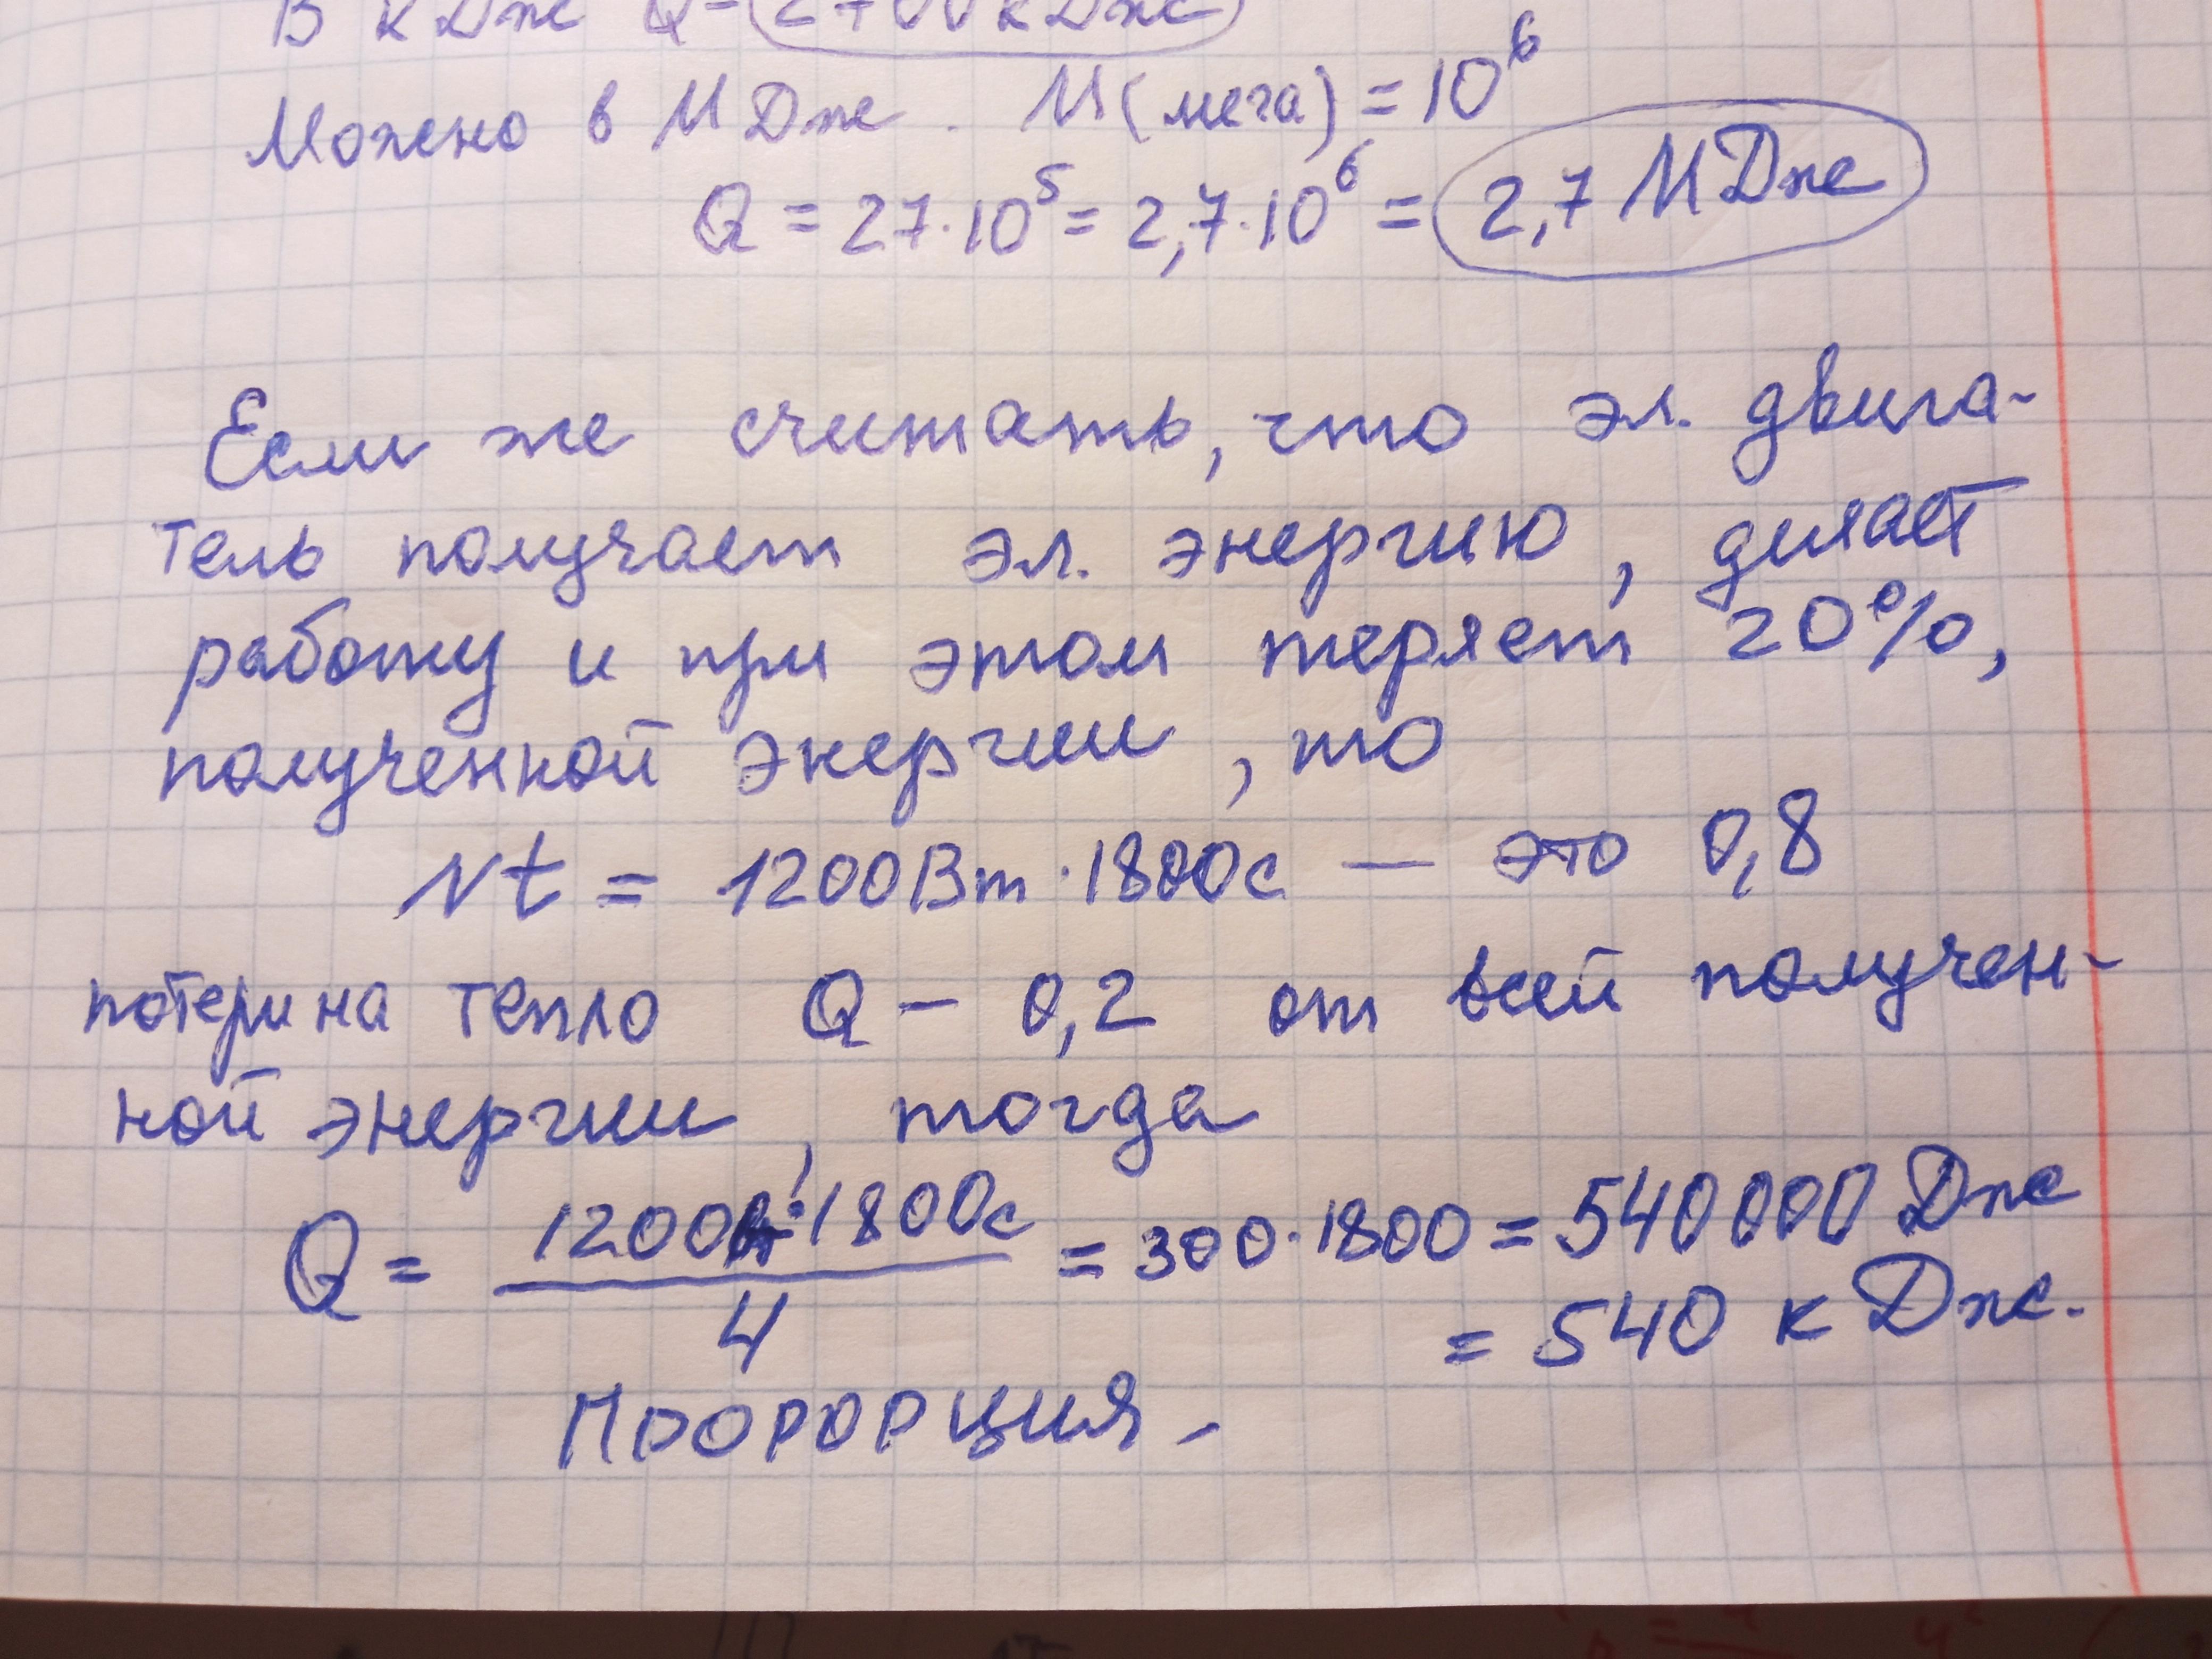 В кДж Q = 2700 кДж
Можно в МДж. М(мега) = 10⁶
Q = 27·10⁵ = 2,7·10⁶ = 2,7 МДж
Если же считать, что эл. двига-
тель получает эл. энергию, делает
работу и при этом теряет 20%,
полученной энергии, то
Nt = 1200Вт·1800с — это 0,8
потери на тепло Q – 0,2 от всей получен-
ной энергии, тогда
Q = 1200Вт·1800с / 4 = 300·1800 = 540000 Дж
= 540 кДж.
Пропорция.